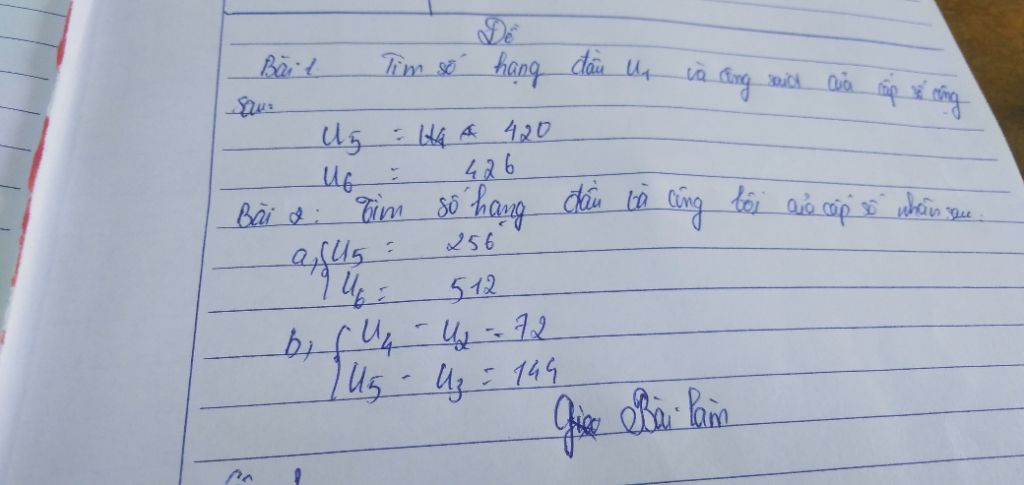 Đề
Bài 1. Tìm số hạng đầu u1 và công sai của cấp số cộng
sau:
u5 = 420
u6 = 426
Bài 2: Tìm số hạng đầu và công bội của cấp số nhân sau:
a, { u5 = 256
u6 = 512
b, { u4 - u2 = 72
u5 - u3 = 144
Bài làm